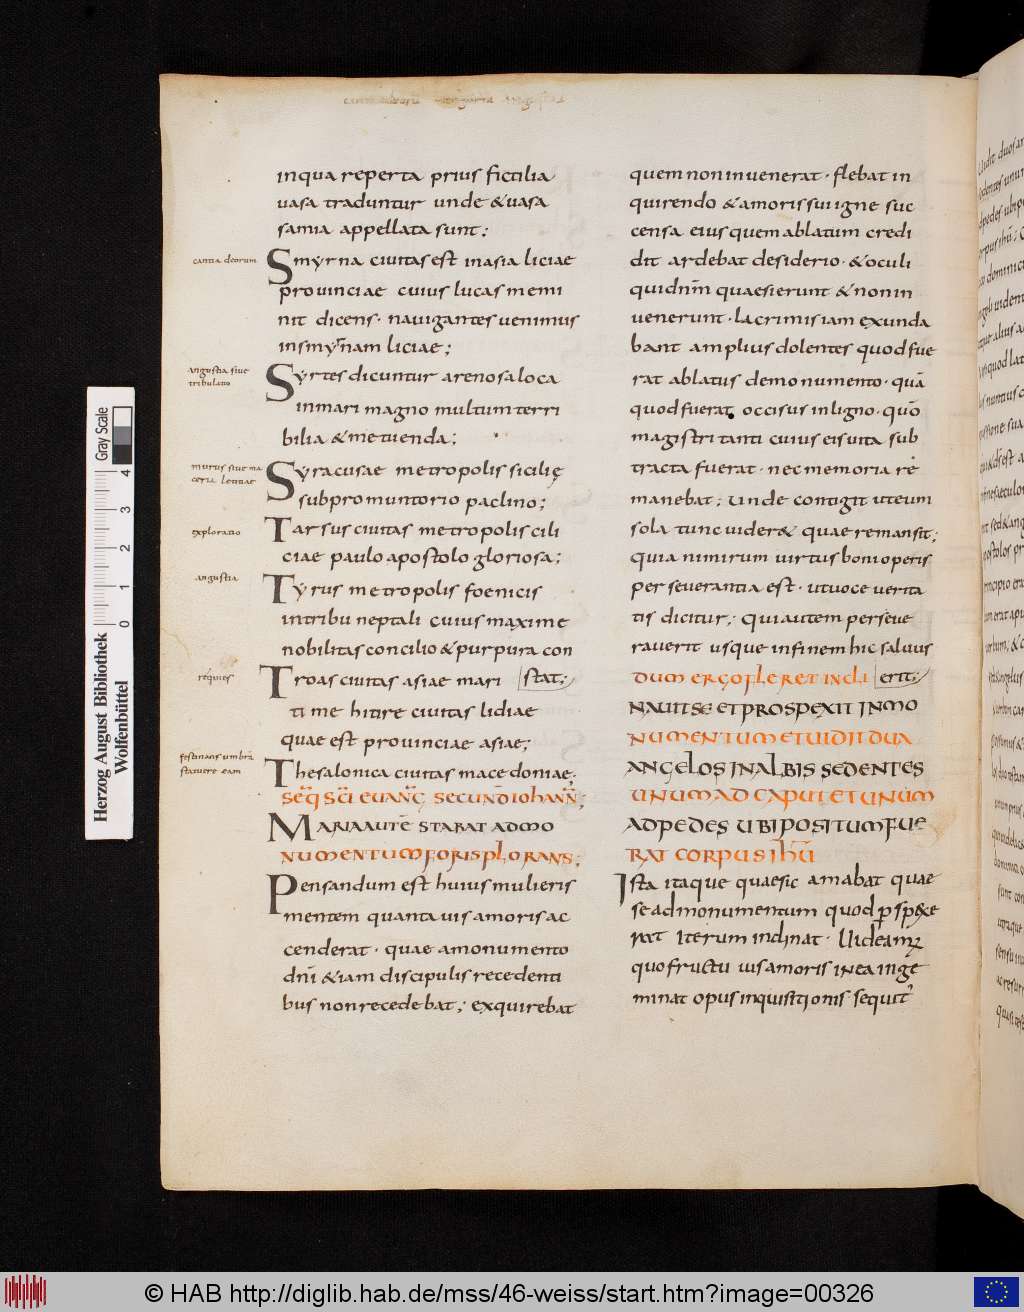 in qua reperta prius fictilia
uasa traduntur unde & uasa
samia appellata sunt;
cantia deorum
Smyrna ciuitas est in asia liciae
prouinciae cuius lucas memi
nit dicens· nauigantes uenimus
in smyrnam liciae;
angustia siue
tribulatio
Syrtes dicuntur arenosa loca
in mari magno multum terri
bilia & metuenda;
murus siue ma
ceria letitiae
Syracusae metropolis sicilię
sub promuntorio paclino;
exploratio
Tarsus ciuitas metropolis cili
ciae paulo apostolo gloriosa;
angustia
Tyrus metropolis foenicis
in tribu neptali cuius maxime
nobilitas concilio & purpura con
stat;
requies
Troas ciuitas asiae mari
time hitire ciuitas lidiae
quae est prouinciae asiae;
festinans umbrā
statuere eam
Thesalonica ciuitas macedoniae;
SEQ̄ SC̄I EUANḠ SECUND̄ IOHANN̄;
MARIA AUTĒ STABAT AD MO
NUMENTUM FORIS PLORANS;
Pensandum est huius mulieris
mentem quanta uis amoris ac
cenderat· quae a monumento
dn̄i & iam discipulis recedenti
bus non recedebat; exquirebat
quem non inuenerat· flebat in
quirendo & amoris sui igne suc
censa eius quem ablatum credi
dit ardebat desiderio· & oculi
quidnm̄ quaesierunt & non in
uenerunt· lacrimis iam exunda
bant amplius dolentes quod fue
rat ablatus de monumento· quā
quod fuerat occisus in ligno· quō
magistri tanti cuius ei uita sub
tracta fuerat· nec memoria re
manebat; Unde contigit ut eum
sola tunc uider& quae remansit;
quia nimirum uirtus boni operis
perseuerantia est· ut uoce uerita
tis dicitur; qui autem perseue
rauerit usque in finem hic saluus
erit;
DUM ERGO FLERET INCLI
NAUIT SE ET PROSPEXIT IN MO
NUMENTUM ET UIDIT DUA
ANGELOS IN ALBIS SEDENTES
UNUM AD CAPUT ET UNUM
AD PEDES UBI POSITUM FUE
RAT CORPUS IHŪ
Ista itaque quae sic amabat quae
se ad monumentum quod p̱spexe
rat iterum inclinat· Uideamꝰ
quo fructu uis amoris in ea inge
minat opus inquisitionis· sequit̄
Herzog August Bibliothek
Wolfenbüttel
0 1 2 3 4
Gray Scale
© HAB http://diglib.hab.de/mss/46-weiss/start.htm?image=00326